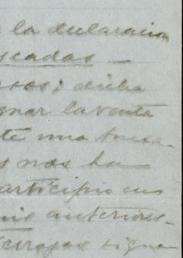 la declaracion
scadas -
sos; dicha
gnar la venta
te una tresa-
s nos ha
articipio en
mis anteriores-
signe